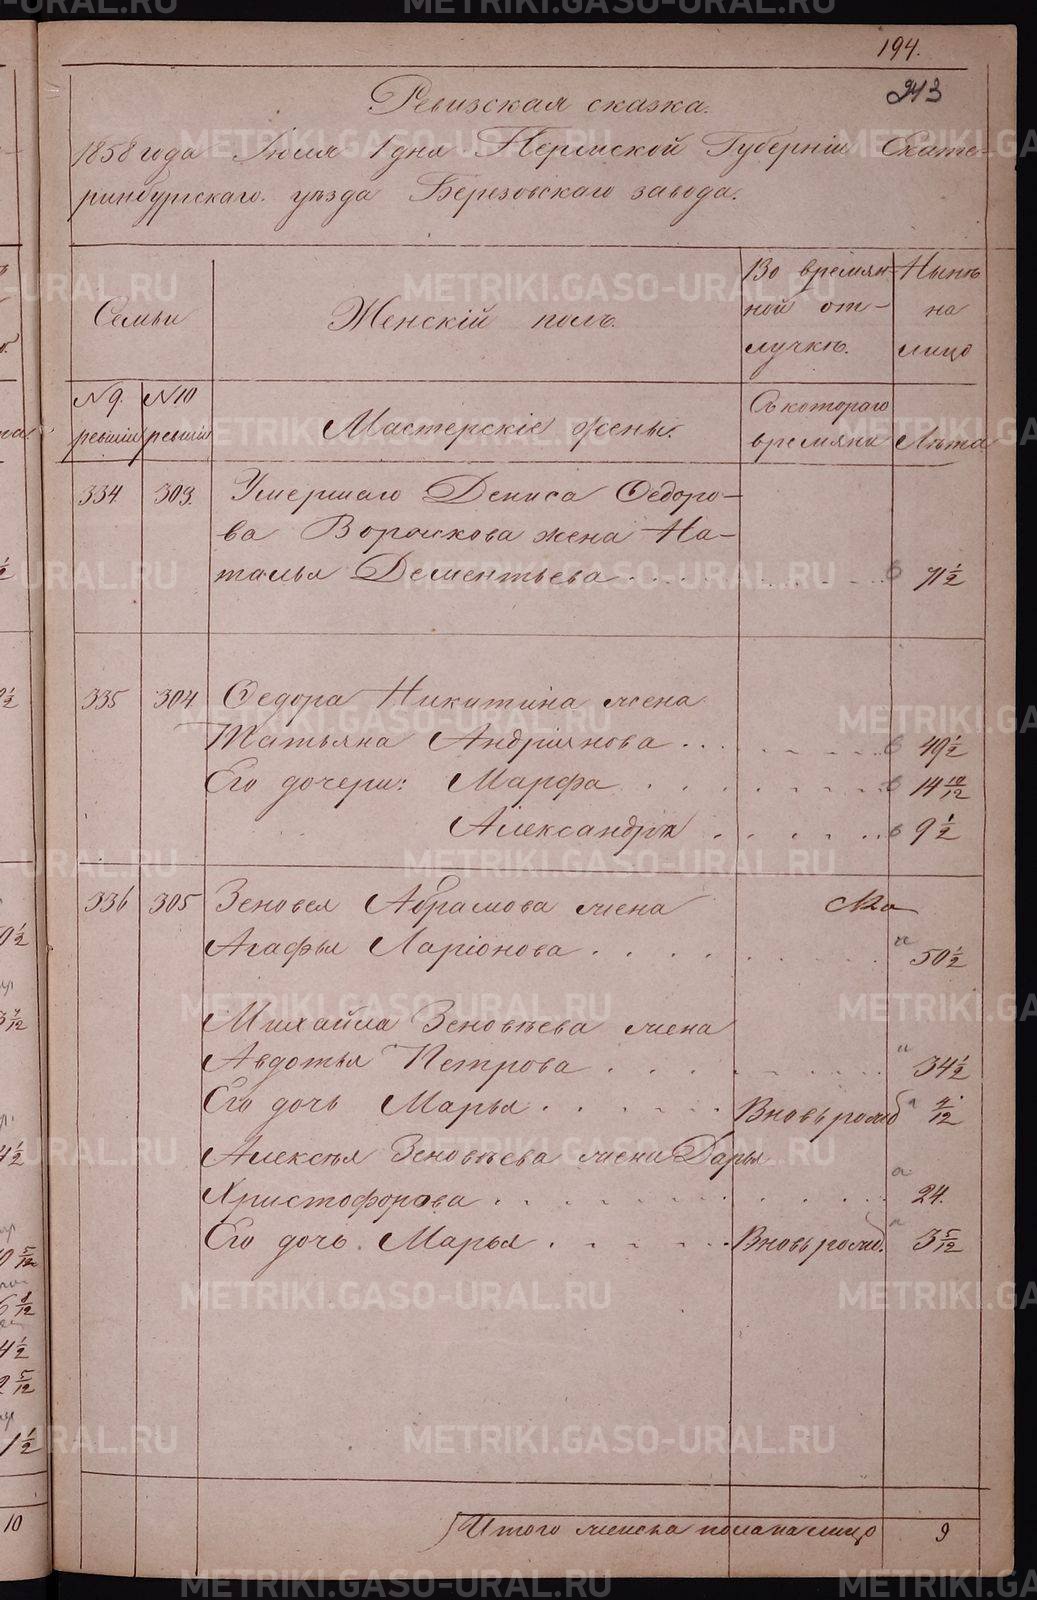 194.
243
Ревизская сказка.
1858 года Июля 1 дня Пермской Губерніи Екате-
ринбургскаго уѣзда Березовскаго завода.
Семьи
Женскій полъ.
Во времян-
ной от-
лучкѣ.
Нынѣ
на
лицо
N 9.
ревизіи
N 10
ревизіи
Мастерскіе жены.
Съ котораго
времяни
Лѣта
334 303. Умершаго Дениса Федоро-
ва Ворошкова жена На-
талья Дементьева 71 1/2
335 304 Федора Никитина жена
Татьяна Андріянова 49 1/2
Его дочери: Марфа 14 10/12
Александра 9 1/2
336 305 Зеновея Абрамова жена
Агафья Ларіонова 50 1/2
Михайла Зеновѣева жена
Авдотья Петрова 34 1/2
Его дочь Марья Вновь рожд 4/12
Алексѣя Зеновѣева жена Дарья
Христофорова 24.
Его дочь Марья Вновь рожд. 3 5/12
Итого женска пола на лицо 9
METRIKI.GASO-URAL.RU